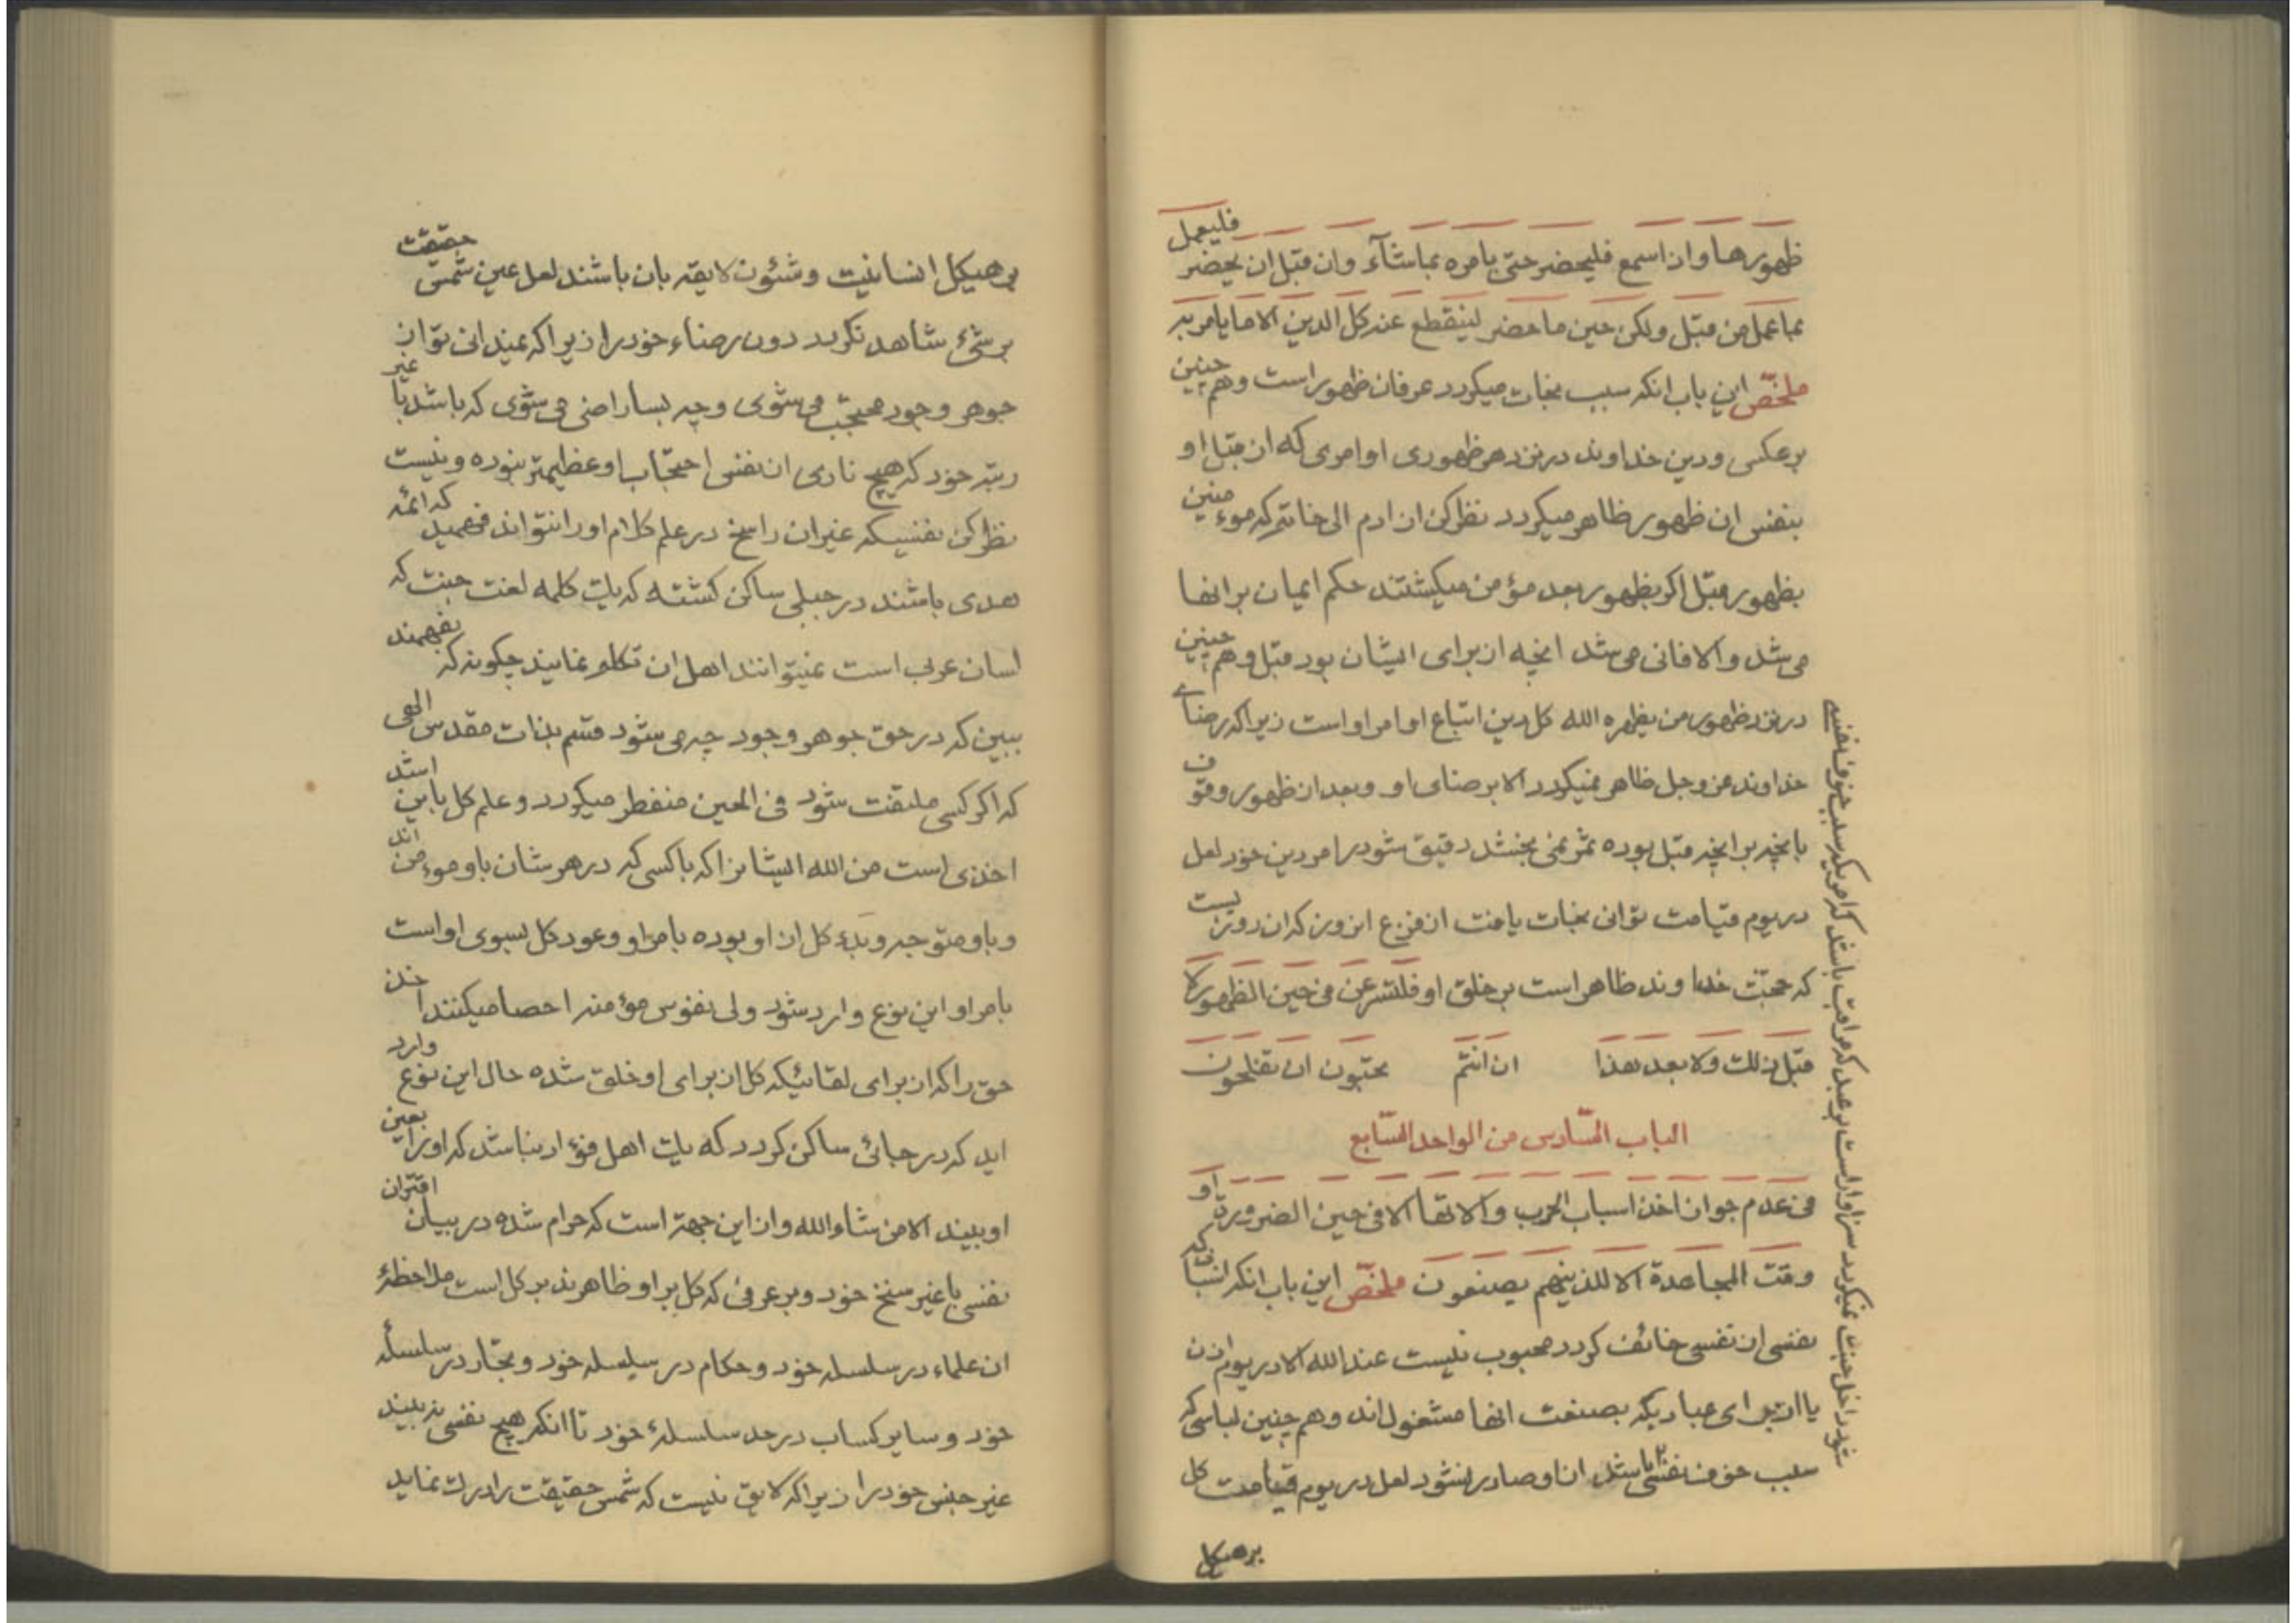 ظهورها وان اسمع فلیحضر حتی یامره بماشآء وان قبل ان یحضر فلیعمل
بما عمل من قبل ولکن حین ما حضر لینقطع عنه کل الدین الا ما یامر به
ملخّص این باب انکه سبب نجات میکردد عرفان ظهور است وهم چنین
برعکس ودین خداوند در نزد هر ظهوری اوامری که از قبل او
بنفس ان ظهور ظاهر میکردد نظر کن از ادم الی خاتم که موءمنین
بظهور قبل اکر بظهور بعد مؤمن میکشتند حکم ایمان بر انها
می شد والا فانی می شد انچه از برای ایشان بود قبل وهم چنین
در نزد ظهور من یظهره الله کل دین اتباع اوامر او است زیرا که رضای
خداوند عز وجل ظاهر نمیکردد الا برضای او وبعد از ظهور وقوف
بانچه بر انچه قبل بوده ثمر نمی بخشد دقیق شو در امر دین خود لعل
در یوم قیامت توانی نجات یافت از فزع ان روز که ان روزیست
که حجّت خداوند ظاهر است بر خلق او فلتسرعن فی حین الظهور لا
قبل ذلک ولا بعد هذا ان انتم تحبّون ان تفلحون
الباب السّادس من الواحد السّابع
فی عدم جواز اخذ اسباب الحرب والاتها الا فی حین الضرورة او
وقت المجاهدة الا للذینهم یصنعون ملخّص این باب انکه اسبابی که
نفسی از نفسی خائف کردد محبوب نیست عند الله الا در یوم اذن
یا از برای عبادیکه بصنعت انها مشغول اند وهم چنین لباسی که
سبب خوف نفسی باشد از او صادر نشود لعل در یوم قیامت کل
برهیکل
برهیکل انسانیت وشئون لایقه بان باشند لعل عین شمس حقیقت
بر شئ شاهد نکردد دون رضاء خود را زیرا که نمیدانی تو از
جوهر وجود محتجب می شوی وچه بسا راضی می شوی که باشد با غیر
رتبه خود که هیچ ناری از نفس احتجاب او عظیمتر نبوده ونیست
نظر کن نفسیکه غیر از راسخ در علم کلام او را نتواند فهمید که ائمه
هدی باشند در جبلی ساکن کشته که یک کلمه لغت جنت که
لسان عرب است نمیتوانند اهل ان تکلم نمایند چکونه که بفهمند
ببین که در حق جوهر وجود چه می شود قسم بذات مقدس الهی
که اکر کسی ملتفت شود فی الحین منفطر میکردد وعلم کل باین اشد
اخذی است من الله ایشانرا که با کسی که در هر شان باو موءمن اند
وباو متوجه وبدء کل از او بوده بامر او وعود کل بسوی او است
بامر او این نوع وارد شود ولی نفوس مؤمنه احصا میکنند اخذ
حق را که از برای لقائیکه کل از برای او خلق شده حال این نوع وارد
اید که در جبائی ساکن کردد که یک اهل فؤاد نباشد که او را بعین
او بیند الا من شاء الله واز این جهة است که حرام شده در بیان اقتران
نفسی با غیر سنخ خود وبر عرفی که کل بر او ظاهرند بر کل است ملاحظهٔ
ان علماء در سلسله خود وحکام در سلسله خود وتجار در سلسلهٔ
خود وسایر کساب در حد سلسلهٔ خود تا انکه هیچ نفسی نه بیند
غیر جنس خود را زیرا که لایق نیست که شمس حقیقت را درک نماید